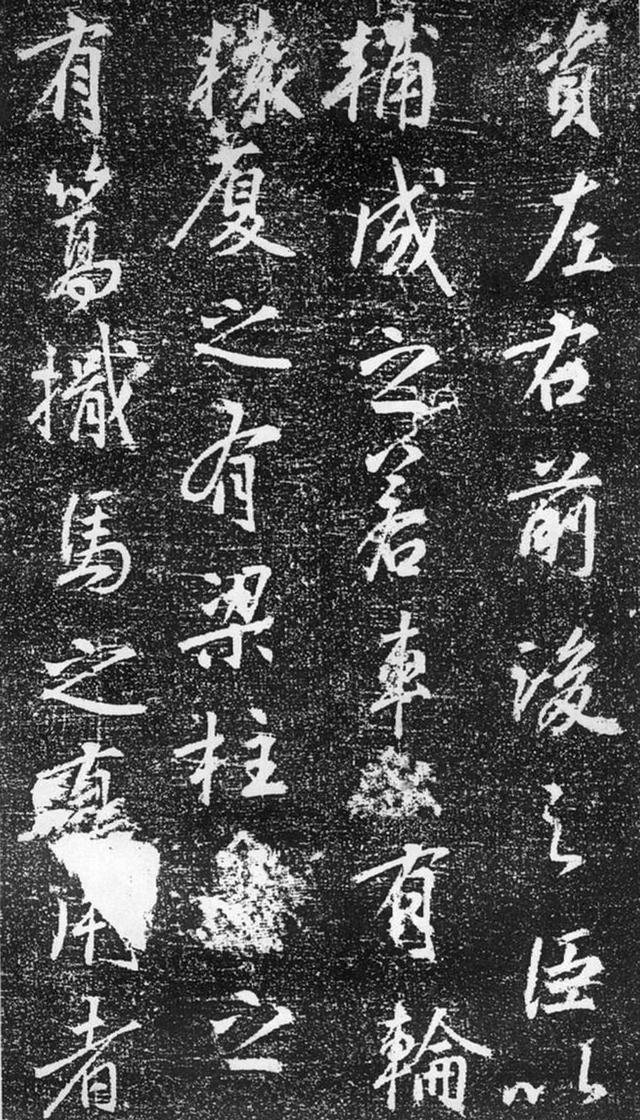 資左右前後之臣以
輔成之若車有輪
轅廈之有梁柱之
有篙檝馬之用者